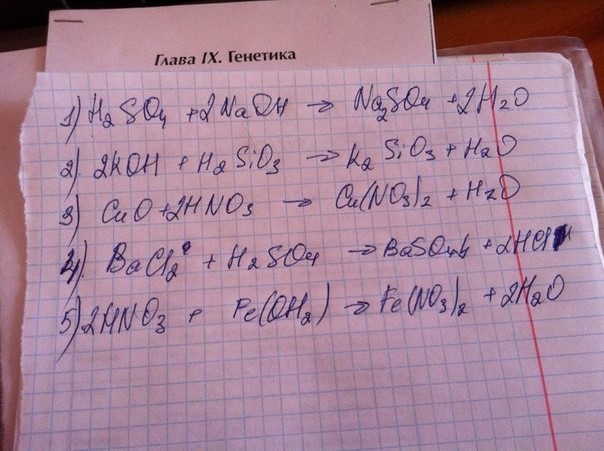 Глава IX. Генетика
1) H2SO4 + 2NaOH → Na2SO4 + 2H2O
2) 2KOH + H2SiO3 → K2SiO3 + H2O
3) CuO + 2HNO3 → Cu(NO3)2 + H2O
4) BaCl2 + H2SO4 → BaSO4↓ + 2HCl
5) 2HNO3 + Fe(OH2) → Fe(NO3)2 + 2H2O